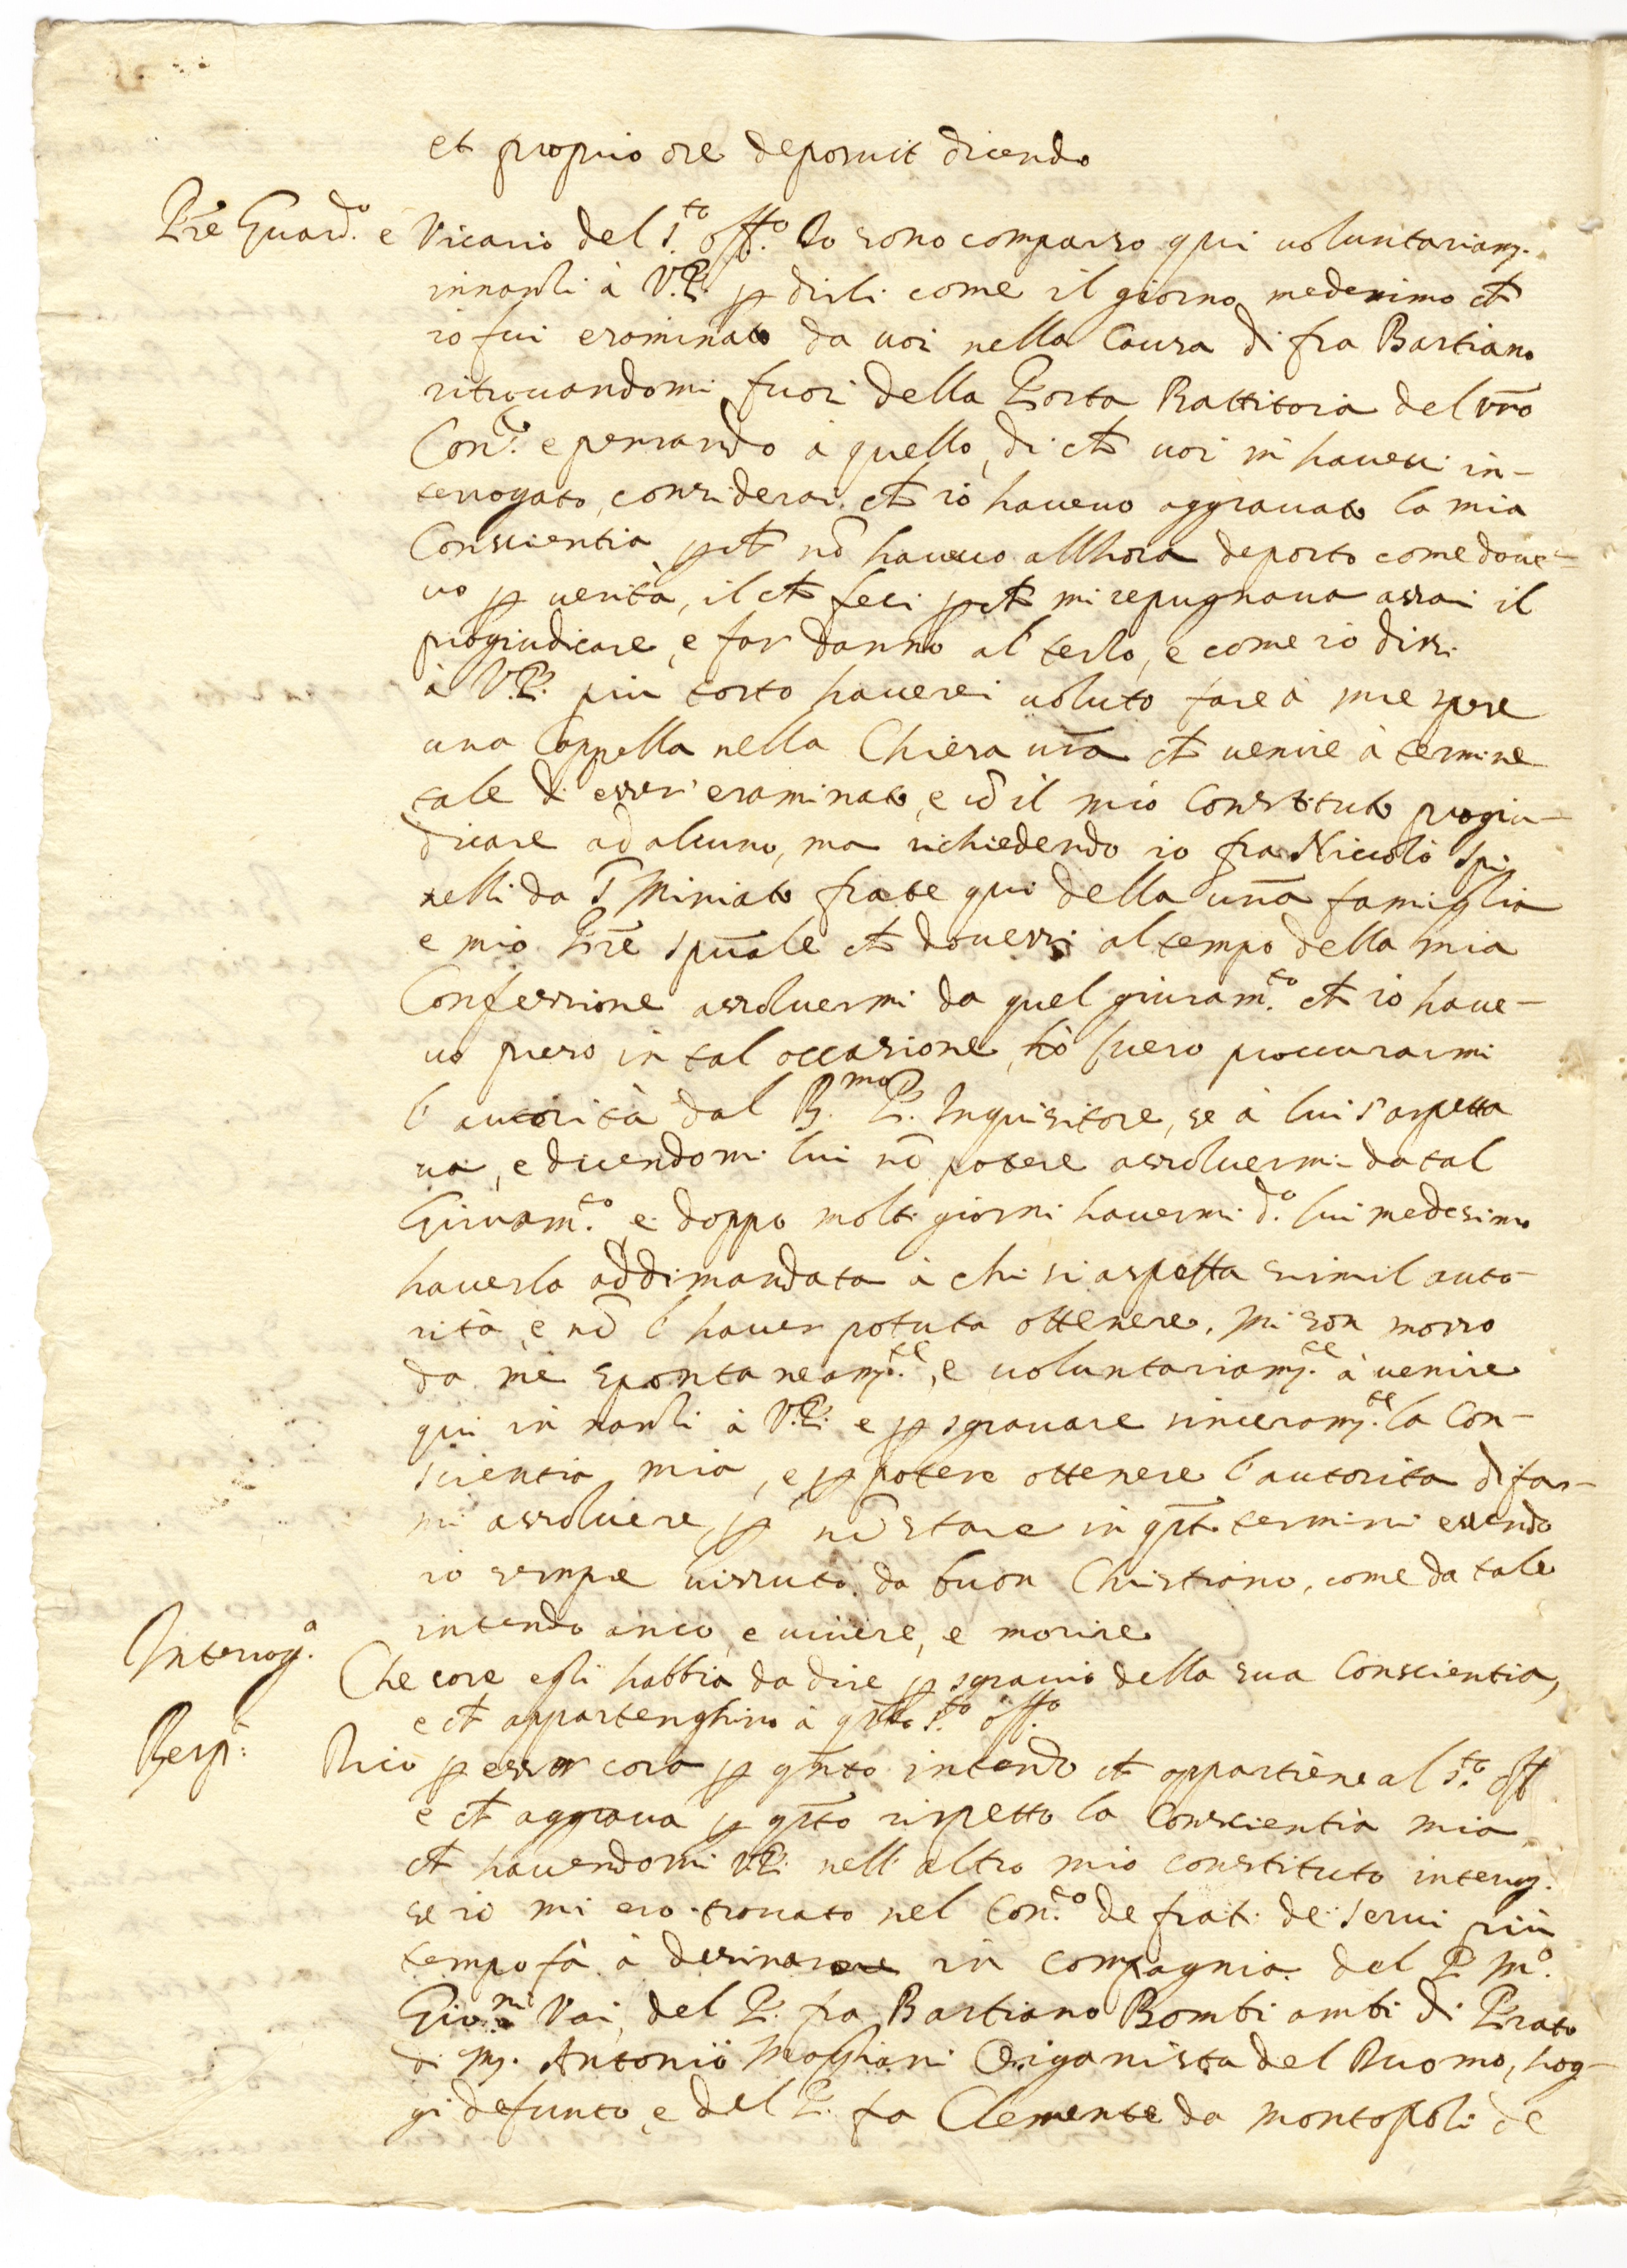 et proprio ore deposuit dicendo
Pre Guard.º e Vicario del S.to Off.º Io sono comparso qui voluntariam.
innanzi à V.P. p dirli come il giorno medesimo ch
io fui esaminato da voi nella Causa di fra Bastiano
ritrovandomi fuori della Porta Battitoia del vro
Con.to e pensando à quello, di ch voi m' havevi in-
terrogato, considerai ch io havevo aggravato la mia
Conscientia pch nō havevo allhora deposto come dove-
vo p verità, il ch feci pch mi repugnava assai il
progiudicare, e far danno al terzo, e come io dissi
à V.P. più tosto haverei voluto fare à mie spese
una Cappella nella Chiesa vra ch venire à termine
tale di esser' esaminato, e cō il mio Constituto progiu-
dicare ad alcuno, ma richiedendo io fra Niccolò Spi
nelli da S Miniato frate qui della vra famiglia
e mio Pre Spuale ch dovessi al tempo della mia
Confessione assolvermi da quel giuram.to ch io have-
vo preso in tal occasione, ò vero proccurarmi
l' autorità dal R.mo P. Inquisitore, se à lui s' aspetta
va, e dicendomi lui nō potere assolvermi da tal
Giuram.to e doppo molti giorni havermi d.º lui medesimo
haverla addimandata à chi si aspetta simil auto-
rità e nō l' haver potuta ottenere. mi son mosso
da me spontaneam.te, e voluntariam.te à venire
qui innanzi à V.P. e p sgravare sinceram.te la Con-
scientia mia, e p potere ottenere l' autorità di far-
mi assolvere, p nō stare in qti termini essendo
io sempre vissuto da buon Christiano, come da tale
intendo anco, e vivere, e morire
Interrog.º Che cose egli habbia da dire p sgravio della sua Conscientia,
e ch appartenghino à qto S.to Off.º
Resp.t Dico p esser cosa p qnto intendo ch appartiene al S.to Off
e ch aggrava p qto rispetto la Conscientia mia
ch havendomi V.P. nell' altro mio constituto interrog.
se io mi ero trovato nel Con.to de frati de Servi più
tempo fà à desinare in compagnia del P. M.º
Giov.ni Vai, del P. fra Bastiano Bombi ambi di Prato
di M. Antonio Magliani Organista del Duomo, hog-
gi defunto, e del P. fra Clemente da Montopoli de